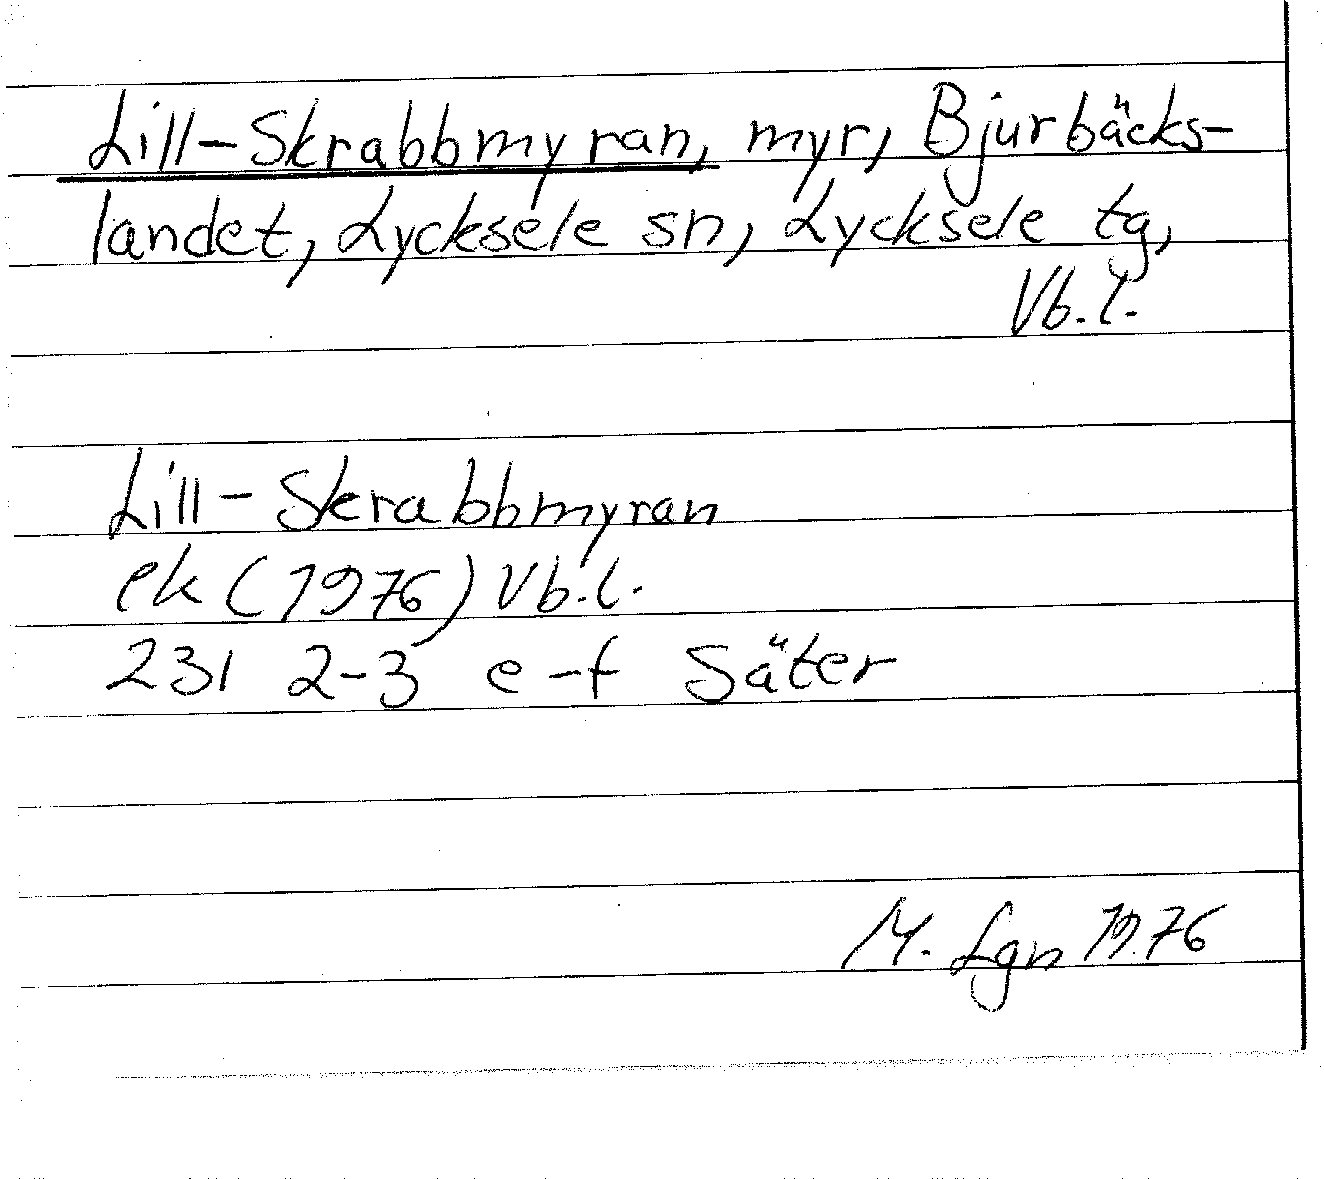 Lill-Skrabbmyran, myr, Bjurbäcks-
landet, Lycksele sn, Lycksele tg,
Vb.l.
Lill-Skrabbmyran
ek (1976) Vb.l.
231 2-3 e-f Säter
M. Lgn 1976